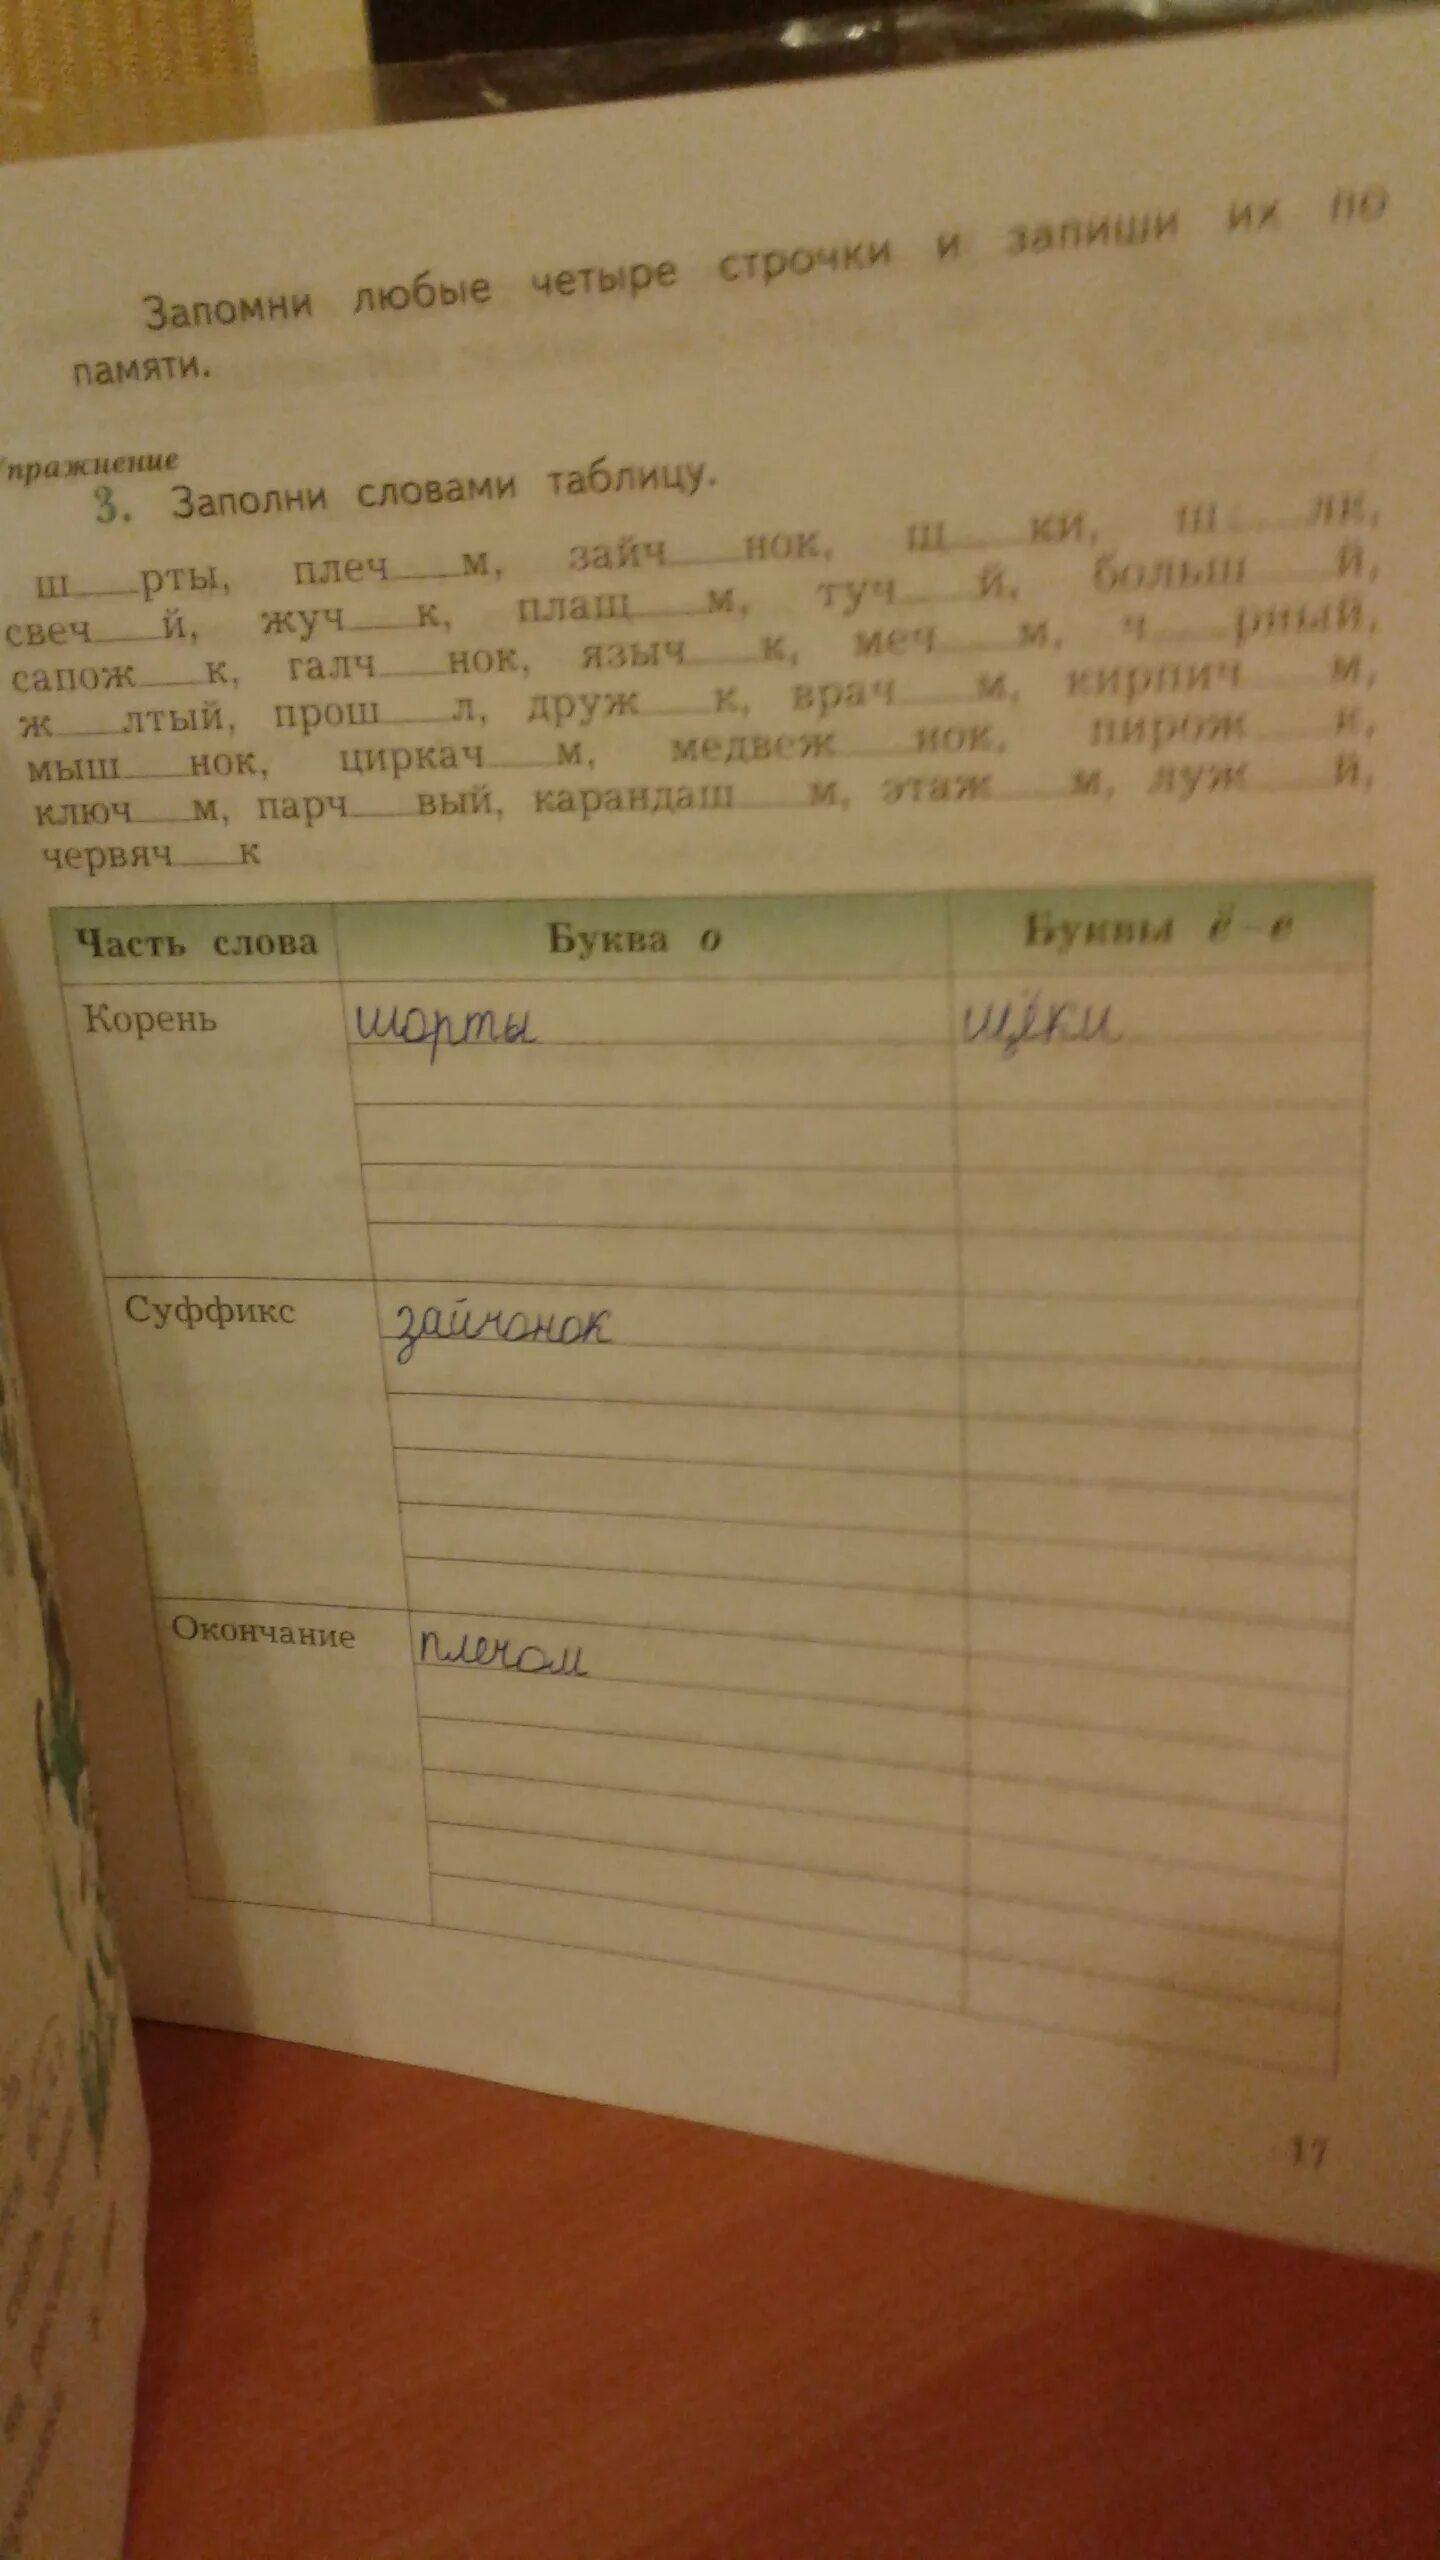 Запомни любые четыре строчки и запиши их по
памяти.
Упражнение
3. Заполни словами таблицу.
ш___рты, плеч___м, зайч___нок, щ___ки, ш___лк,
свеч___й, жуч___к, плащ___м, туч___й, больш___й,
сапож___к, галч___нок, языч___к, меч___м, ч___рный,
ж___лтый, прош___л, друж___к, врач___м, кирпич___м,
мыш___нок, циркач___м, медвеж___нок, пирож___к,
ключ___м, парч___вый, карандаш___м, этаж___м, луж___й,
червяч___к
Часть слова Буква о Буквы ё-е
Корень шорты щёки
Суффикс зайчонок
Окончание плечом
17